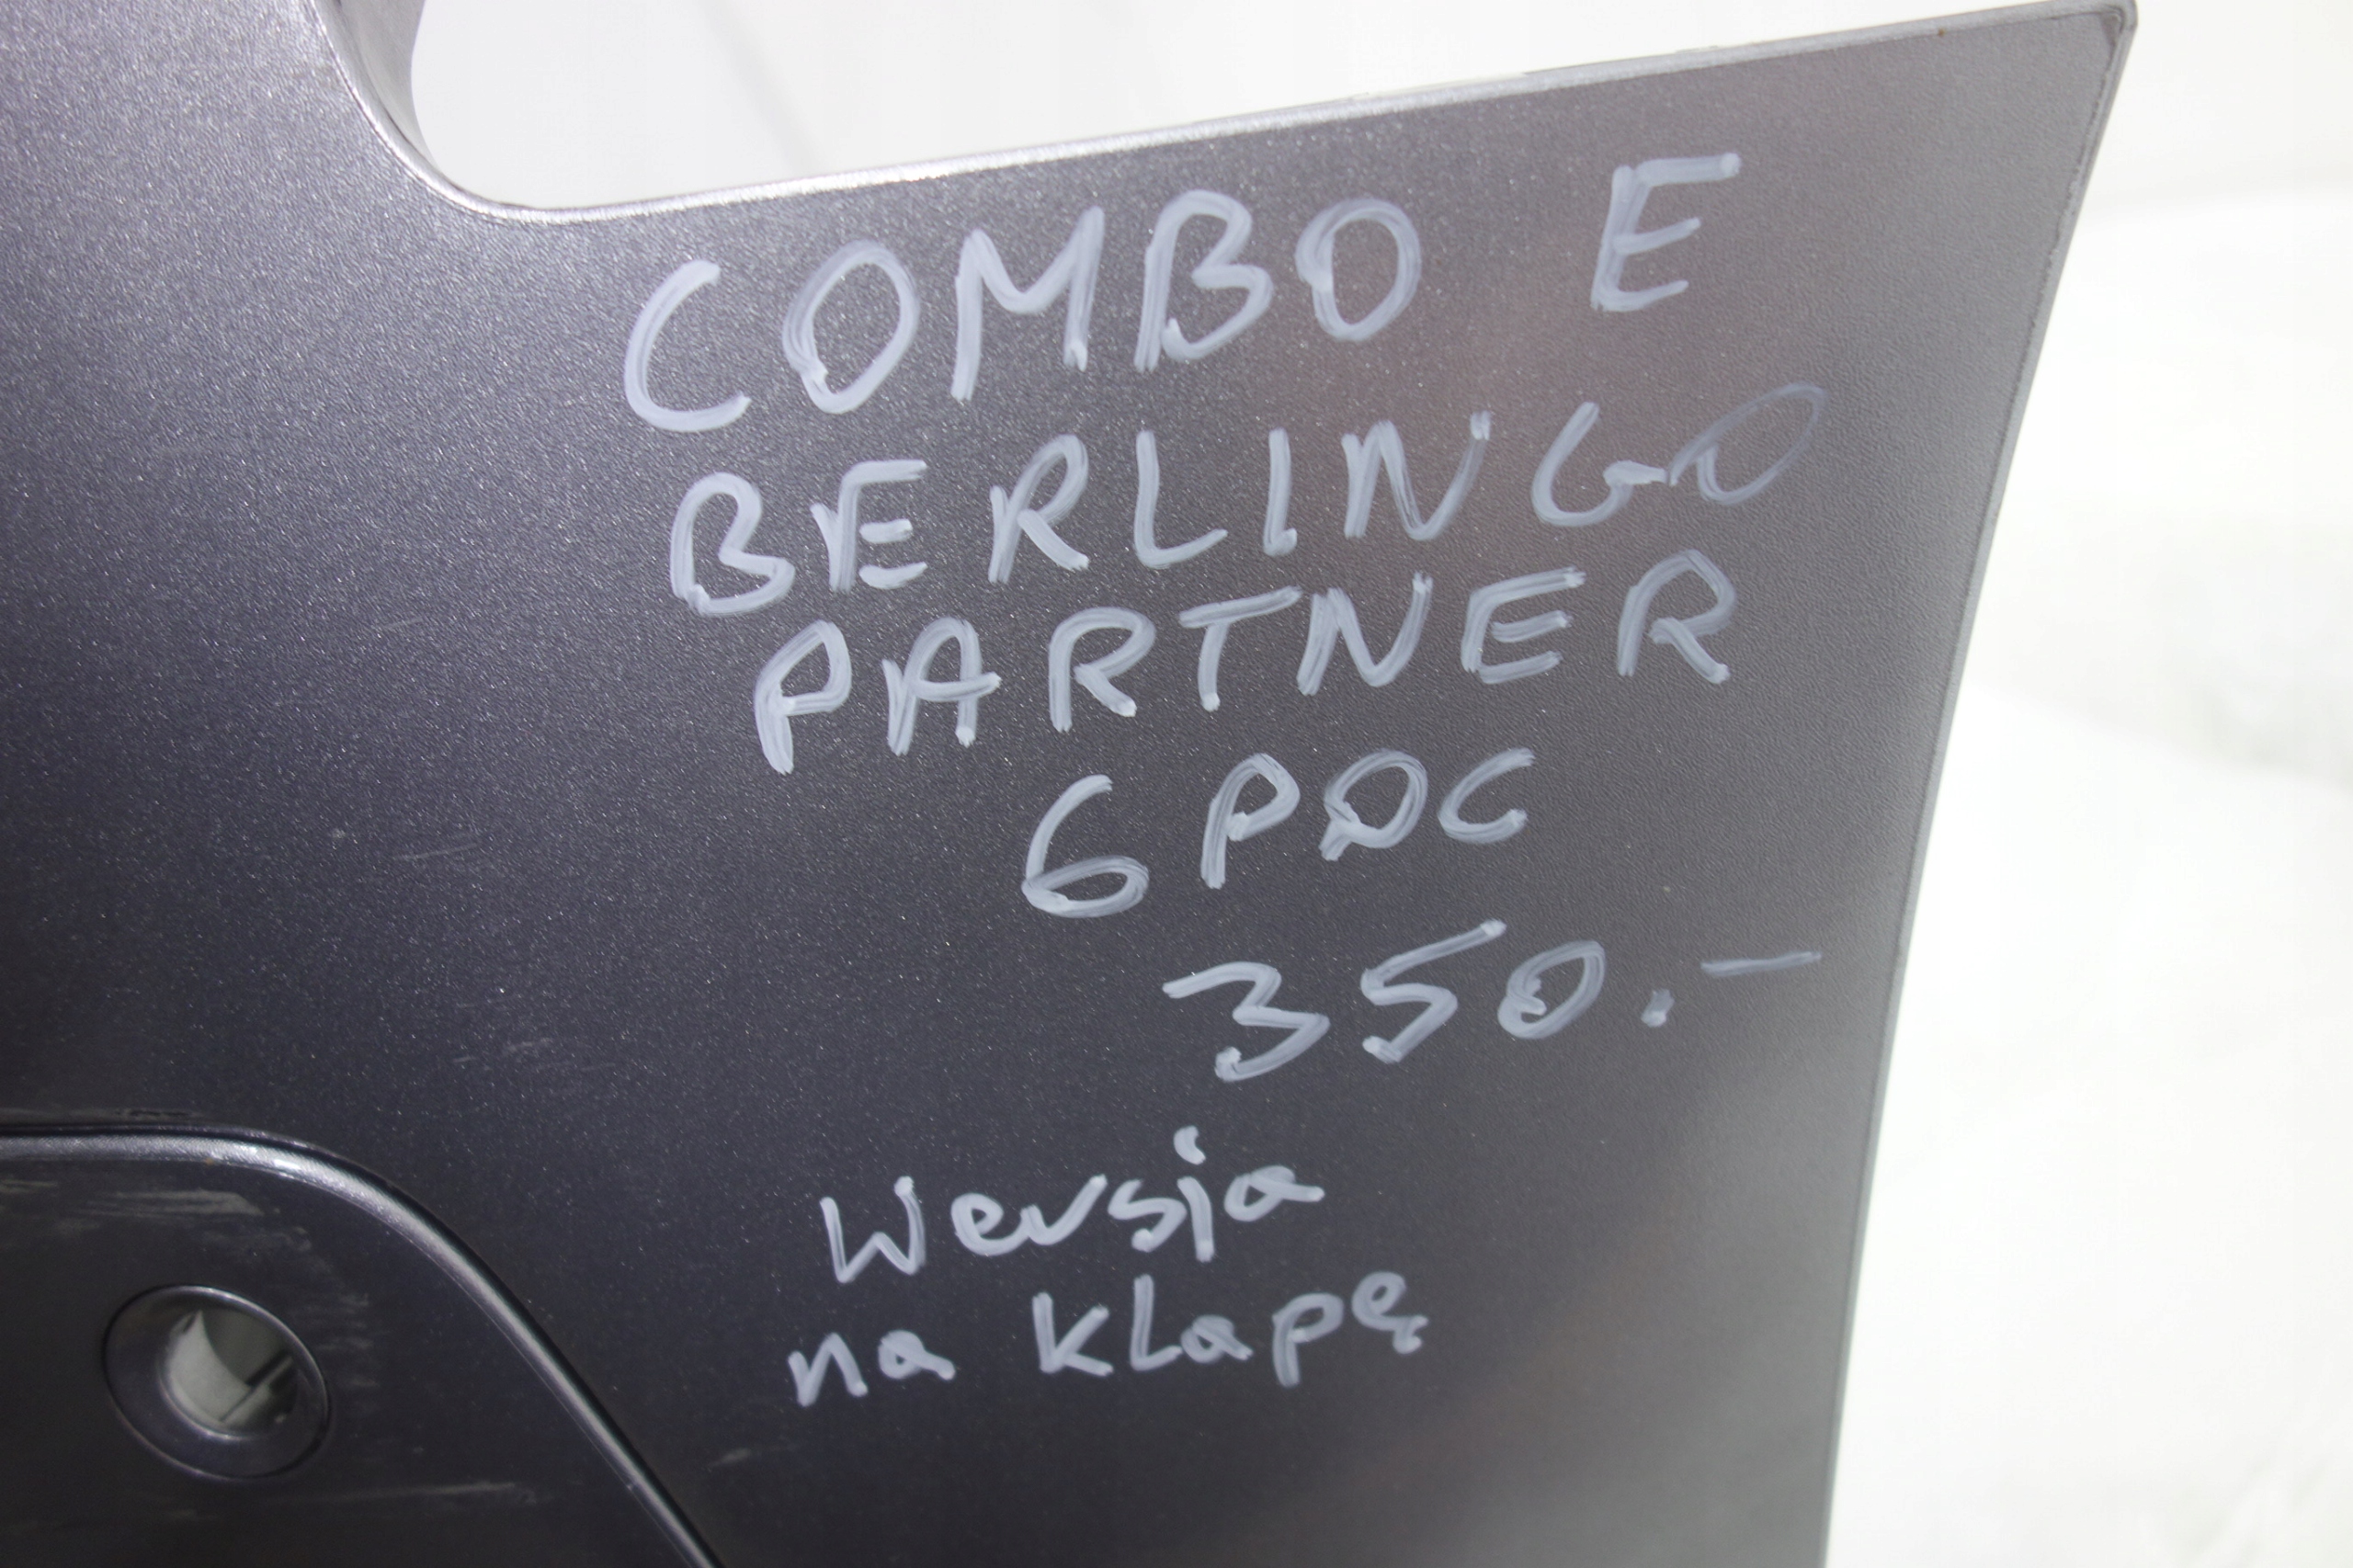 COMBO E
BERLINGO
PARTNER
6 PDC
350.-
Wersja
na klapę